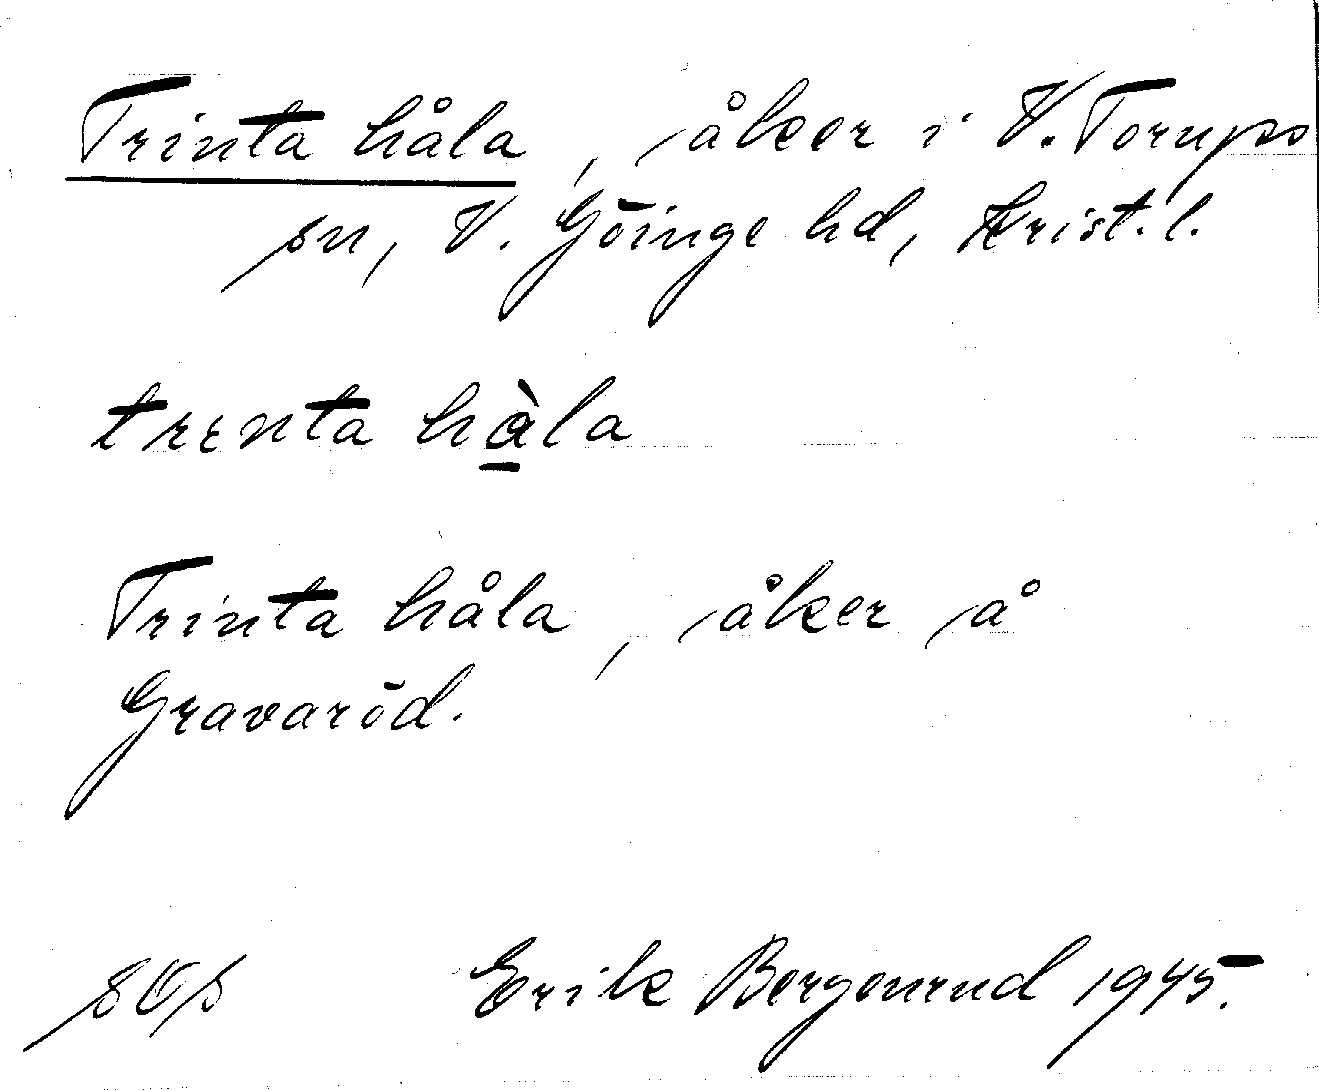 Trinta håla, åker i V. Torups
sn, V. Göinge hd, Krist. l.
trenta hàla
Trinta håla, åker å
Gravaröd.
Erik Bergenrud 1945.